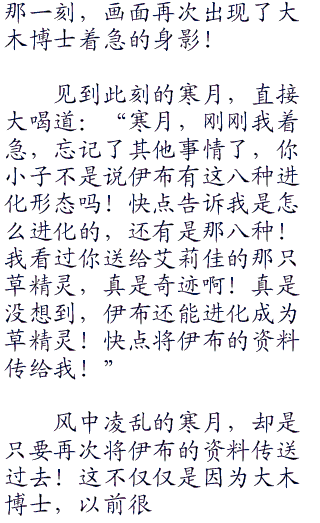 那一刻，画面再次出现了大
木博士着急的身影！
见到此刻的寒月，直接
大喝道：“寒月，刚刚我着
急，忘记了其他事情了，你
小子不是说伊布有这八种进
化形态吗！快点告诉我是怎
么进化的，还有是那八种！
我看过你送给艾莉佳的那只
草精灵，真是奇迹啊！真是
没想到，伊布还能进化成为
草精灵！快点将伊布的资料
传给我！”
风中凌乱的寒月，却是
只要再次将伊布的资料传送
过去！这不仅仅是因为大木
博士，以前很